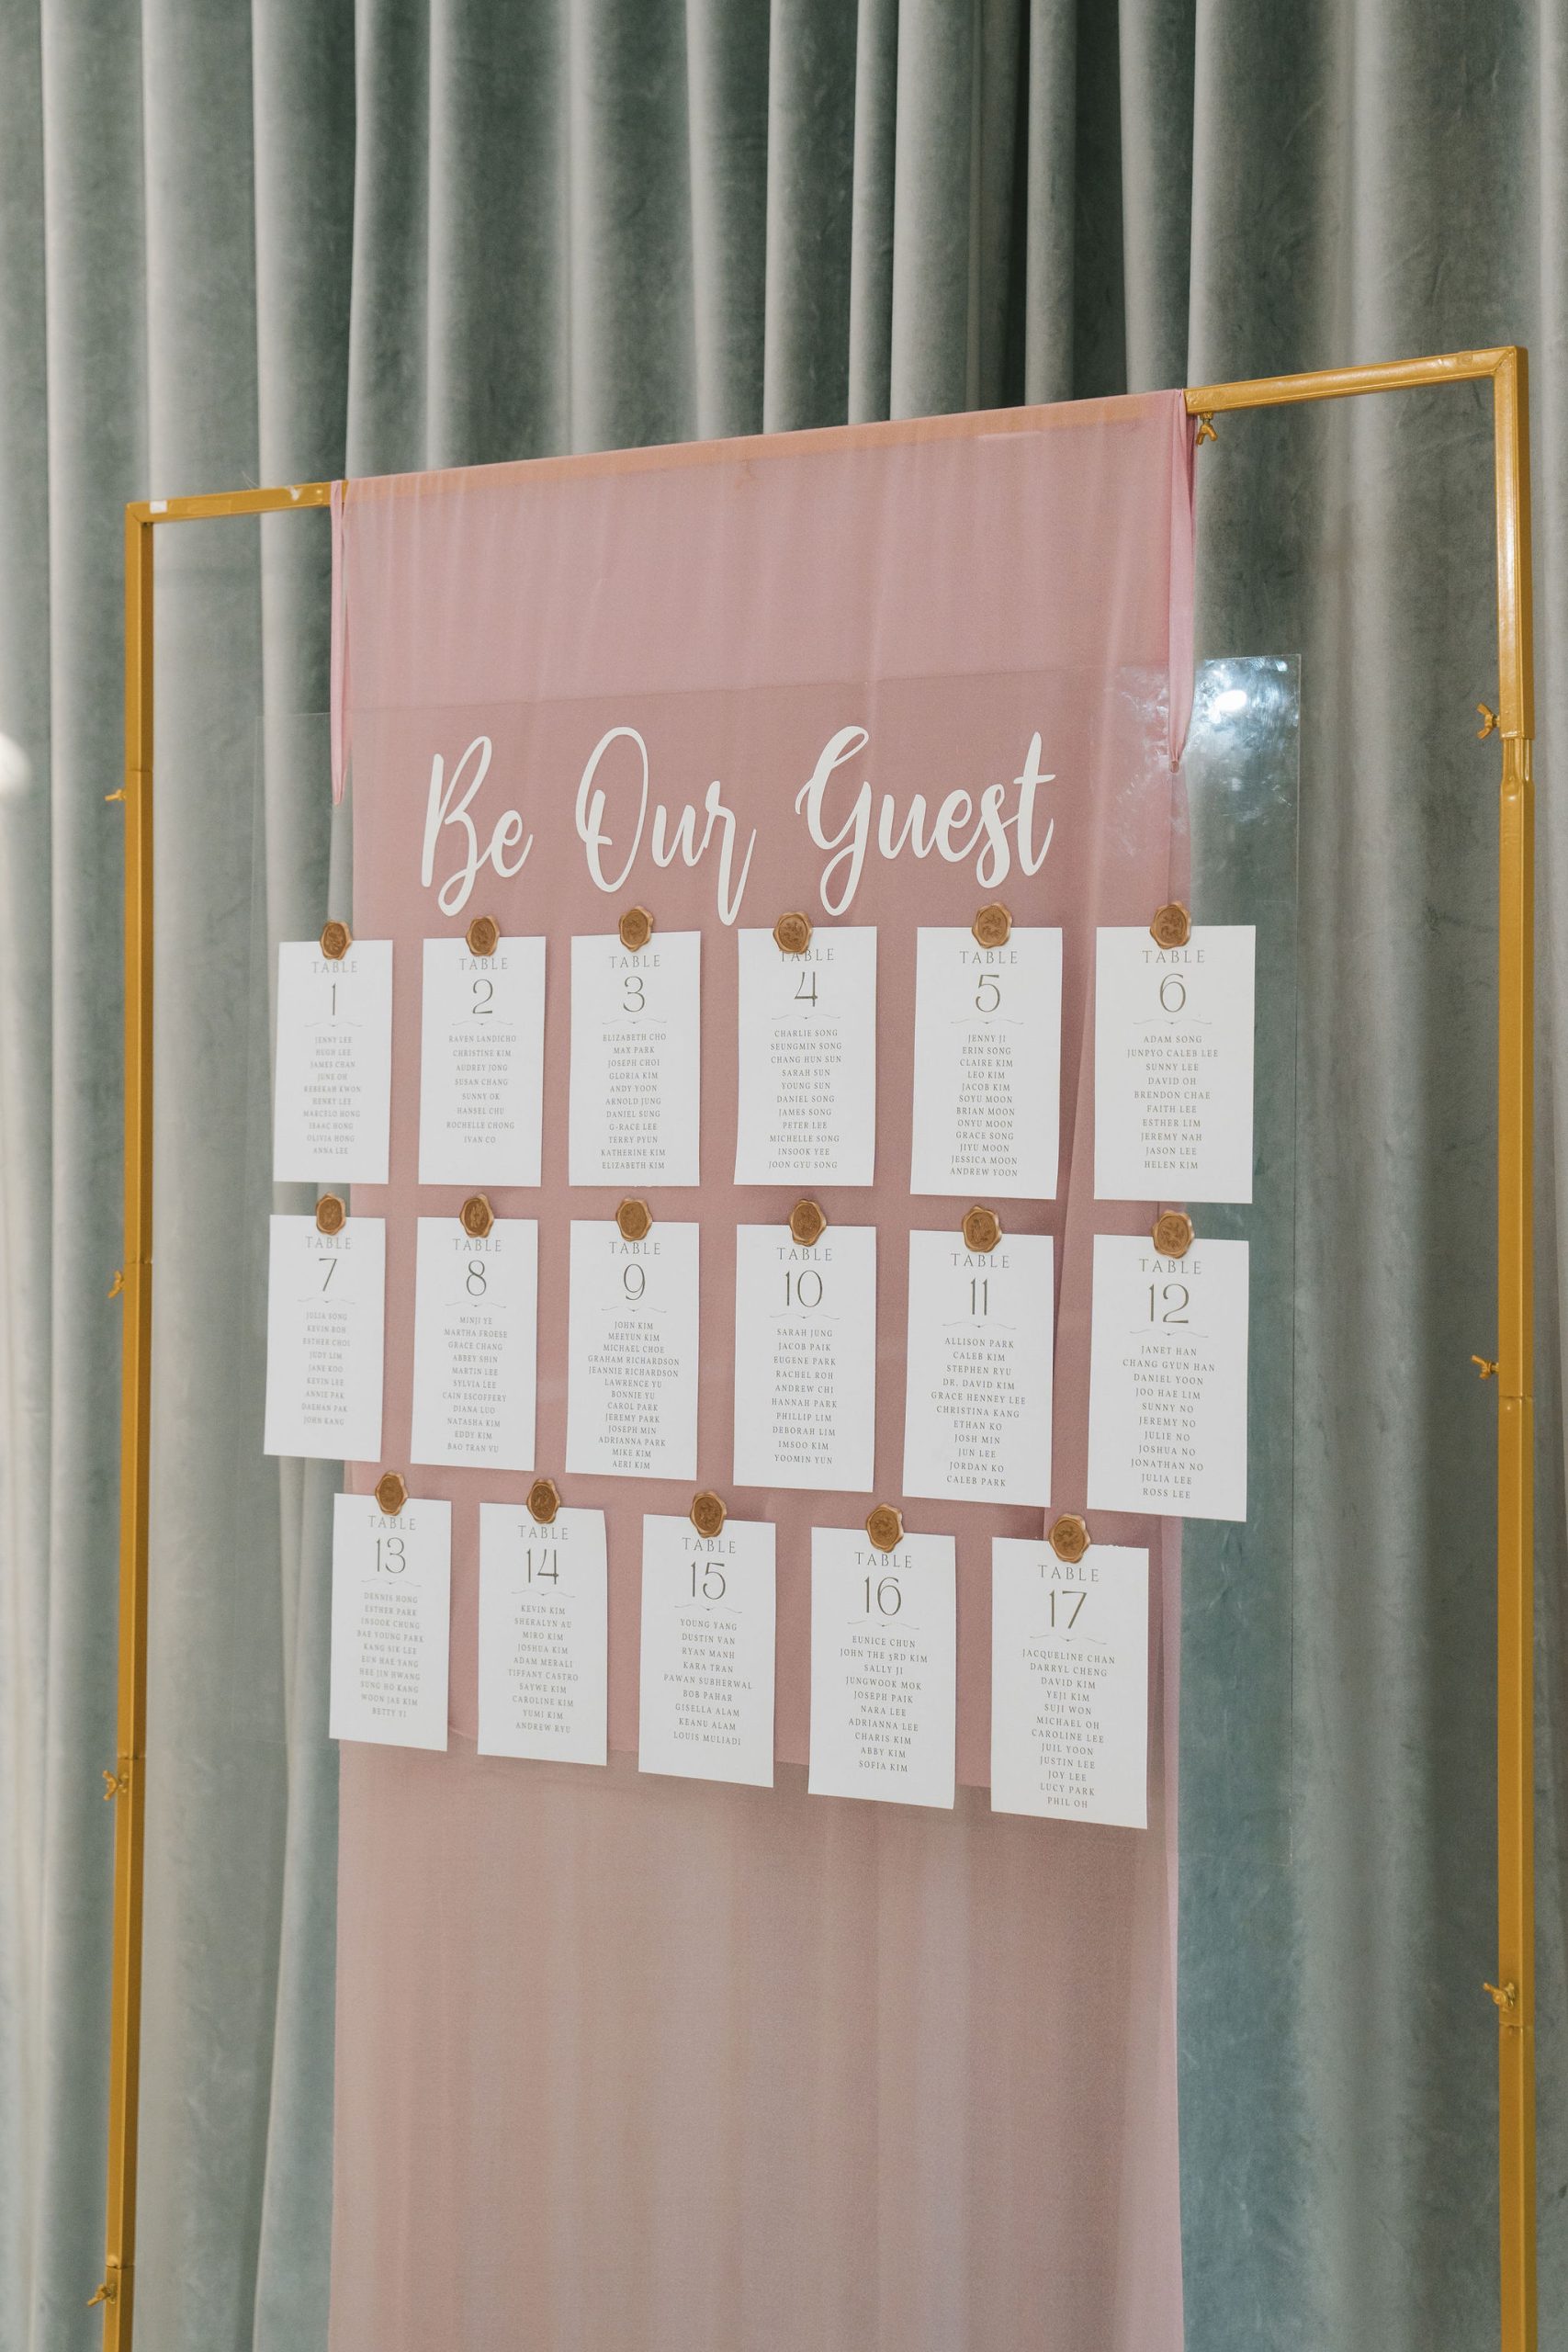 Be Our Guest
TABLE
1
JENNY LEE
HUGH LEE
JAMES CHAN
JUNE OH
REBEKAH KWON
HENRY LEE
MARCELO HONG
ISAAC HONG
OLIVIA HONG
ANNA LEE
TABLE
2
RAVEN LANDICHO
CHRISTINE KIM
AUDREY JONG
SUSAN CHANG
SUNNY OK
HANSEL CHU
ROCHELLE CHONG
IVAN CO
TABLE
3
ELIZABETH CHO
MAX PARK
JOSEPH CHOI
GLORIA KIM
ANDY YOON
ARNOLD JUNG
DANIEL SUNG
G-RACE LEE
TERRY PYUN
KATHERINE KIM
ELIZABETH KIM
TABLE
4
CHARLIE SONG
SEUNGMIN SONG
CHANG HUN SUN
SARAH SUN
YOUNG SUN
DANIEL SONG
JAMES SONG
PETER LEE
MICHELLE SONG
INSOOK YEE
JOON GYU SONG
TABLE
5
JENNY JI
ERIN SONG
CLAIRE KIM
LEO KIM
JACOB KIM
SOYU MOON
BRIAN MOON
ONYU MOON
GRACE SONG
JIYU MOON
JESSICA MOON
ANDREW YOON
TABLE
6
ADAM SONG
JUNPYO CALEB LEE
SUNNY LEE
DAVID OH
BRENDON CHAE
FAITH LEE
ESTHER LIM
JEREMY NAH
JASON LEE
HELEN KIM
TABLE
7
JULIA SONG
KEVIN ROH
ESTHER CHOI
JUDY LIM
JANE KOO
KEVIN LEE
ANNIE PAK
DAEHAN PAK
JOHN KANG
TABLE
8
MINJI YE
MARTHA FROESE
GRACE CHANG
ABBEY SHIN
MARTIN LEE
SYLVIA LEE
CAIN ESCOFFERY
DIANA LUO
NATASHA KIM
EDDY KIM
BAO TRAN VU
TABLE
9
JOHN KIM
MEEYUN KIM
MICHAEL CHOE
GRAHAM RICHARDSON
JEANNIE RICHARDSON
LAWRENCE YU
BONNIE YU
CAROL PARK
JEREMY PARK
JOSEPH MIN
ADRIANNA PARK
MIKE KIM
AERI KIM
TABLE
10
SARAH JUNG
JACOB PAIK
EUGENE PARK
RACHEL ROH
ANDREW CHI
HANNAH PARK
PHILLIP LIM
DEBORAH LIM
IMSOO KIM
YOOMIN YUN
TABLE
11
ALLISON PARK
CALEB KIM
STEPHEN RYU
DR. DAVID KIM
GRACE HENNEY LEE
CHRISTINA KANG
ETHAN KO
JOSH MIN
JUN LEE
JORDAN KO
CALEB PARK
TABLE
12
JANET HAN
CHANG GYUN HAN
DANIEL YOON
JOO HAE LIM
SUNNY NO
JEREMY NO
JULIE NO
JOSHUA NO
JONATHAN NO
JULIA LEE
ROSS LEE
TABLE
13
DENNIS HONG
ESTHER PARK
INSOOK CHUNG
BAE YOUNG PARK
KANG SIK LEE
EUN HAE YANG
HEE JIN HWANG
SUNG HO KANG
WOON JAE KIM
BETTY YI
TABLE
14
KEVIN KIM
SHERALYN AU
MIRO KIM
JOSHUA KIM
ADAM MERALI
TIFFANY CASTRO
SAYWE KIM
CAROLINE KIM
YUMI KIM
ANDREW RYU
TABLE
15
YOUNG YANG
DUSTIN VAN
RYAN MANH
KARA TRAN
PAWAN SUBHERWAL
BOB PAHAR
GISELLA ALAM
KEANU ALAM
LOUIS MULIADI
TABLE
16
EUNICE CHUN
JOHN THE 3RD KIM
SALLY JI
JUNGWOOK MOK
JOSEPH PAIK
NARA LEE
ADRIANNA LEE
CHARIS KIM
ABBY KIM
SOFIA KIM
TABLE
17
JACQUELINE CHAN
DARRYL CHENG
DAVID KIM
YEJI KIM
SUJI WON
MICHAEL OH
CAROLINE LEE
JUIL YOON
JUSTIN LEE
JOY LEE
LUCY PARK
PHIL OH